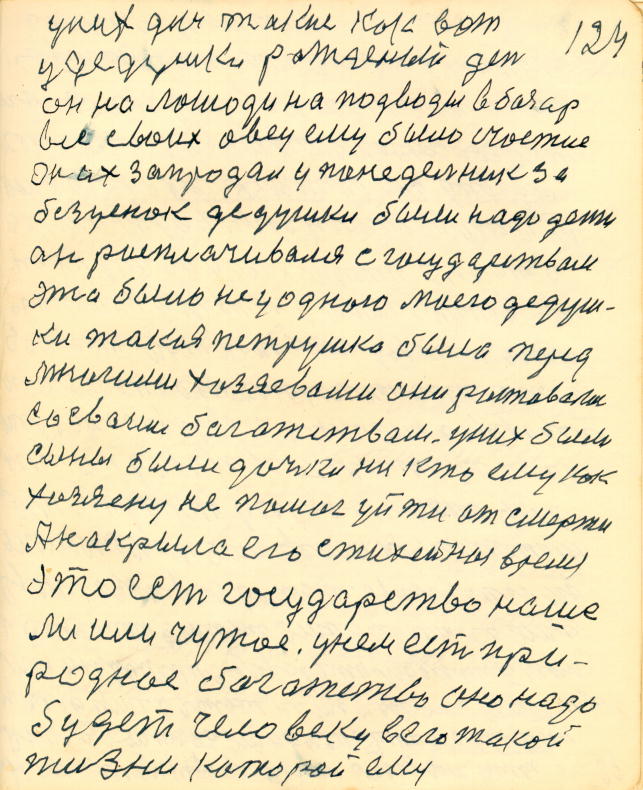 у них дни такие как вот 124
у дедушки рожденный ден
он на лошоди на подводы в базар
вез своих овец ему было счостие
он их запродал у понеделник за
безценок дедушки были надо дети
ан росплачивался с государствам
эта было не у одного моего дедуш-
ки такая петрушка была перед
многими хозяевами они
со своим багатствам. у них были
сыны были дочки ни кто ему как
хозяену не помог уйти от смерти
Анакрыла его стихейная время
это ест государство наше
ли или чужое. унем ест при-
родное багатство оно надо
будет человеку в его такой
жизни каторой ему